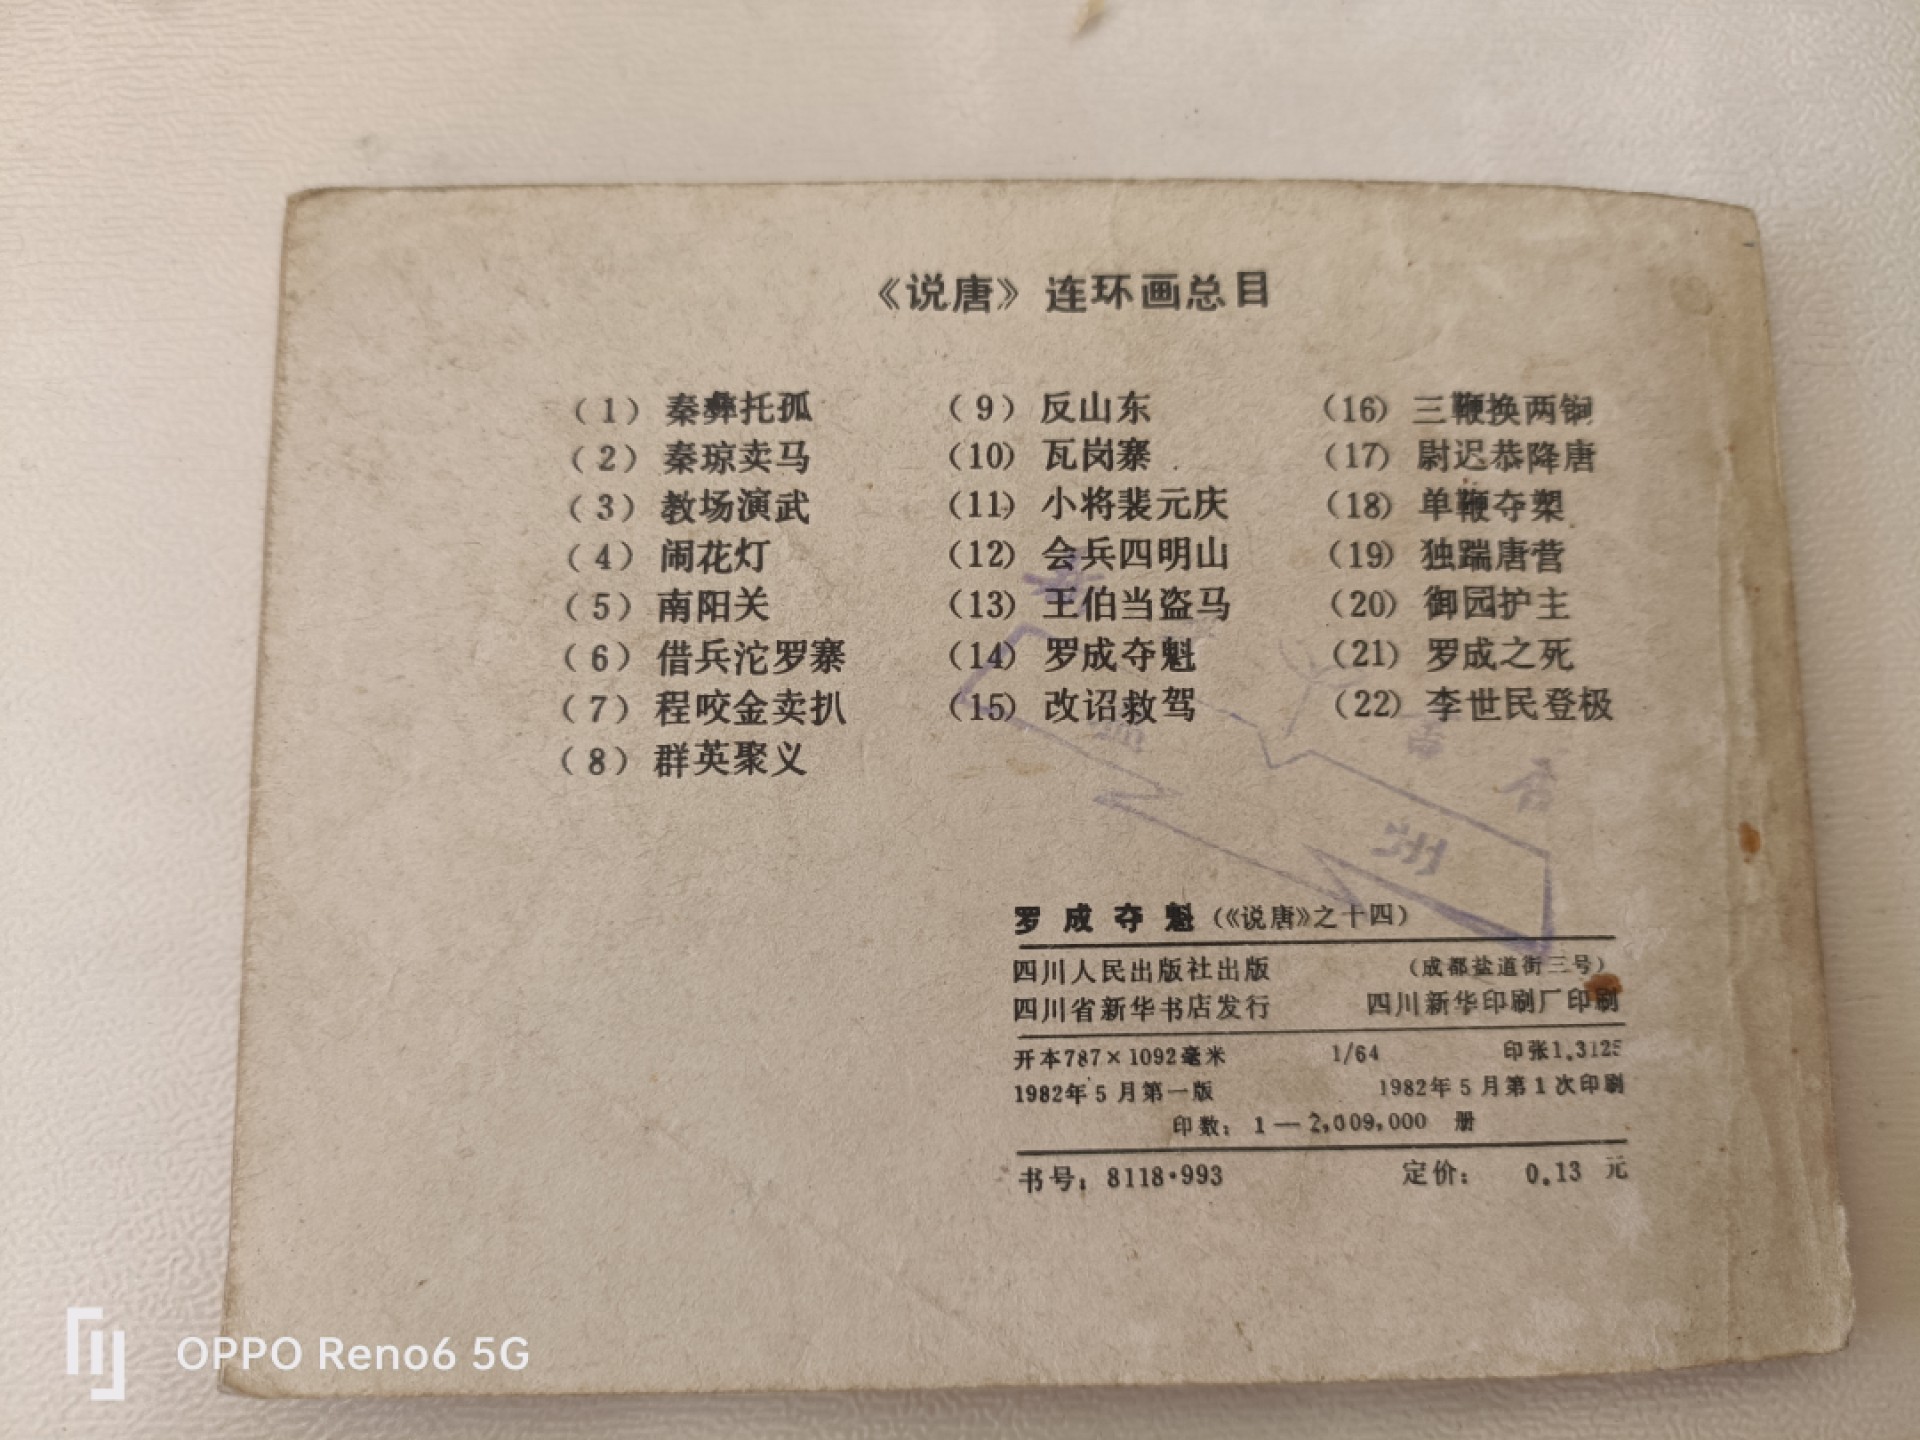 《说唐》连环画总目
（1）秦彝托孤
（2）秦琼卖马
（3）教场演武
（4）闹花灯
（5）南阳关
（6）借兵沱罗寨
（7）程咬金卖扒
（8）群英聚义
（9）反山东
（10）瓦岗寨
（11）小将裴元庆
（12）会兵四明山
（13）王伯当盗马
（14）罗成夺魁
（15）改诏救驾
（16）三鞭换两锏
（17）尉迟恭降唐
（18）单鞭夺槊
（19）独踹唐营
（20）御园护主
（21）罗成之死
（22）李世民登极
州
罗成夺魁（《说唐》之十四）
四川人民出版社出版 （成都盐道街三号）
四川省新华书店发行 四川新华印刷厂印刷
开本787×1092毫米 1/64 印张1.3125
1982年5月第一版 1982年5月第1次印刷
印数：1—2,009,000 册
书号：8118·993 定价： 0.13 元
OPPO Reno6 5G